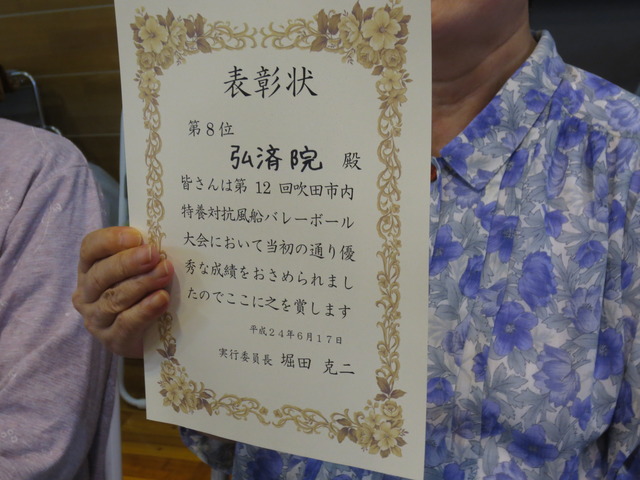 表彰状
第8位
弘済院 殿
皆さんは第12回吹田市内
特養対抗風船バレーボール
大会において当初の通り優
秀な成績をおさめられまし
たのでここに之を賞します
平成24年6月17日
実行委員長 堀田 克二